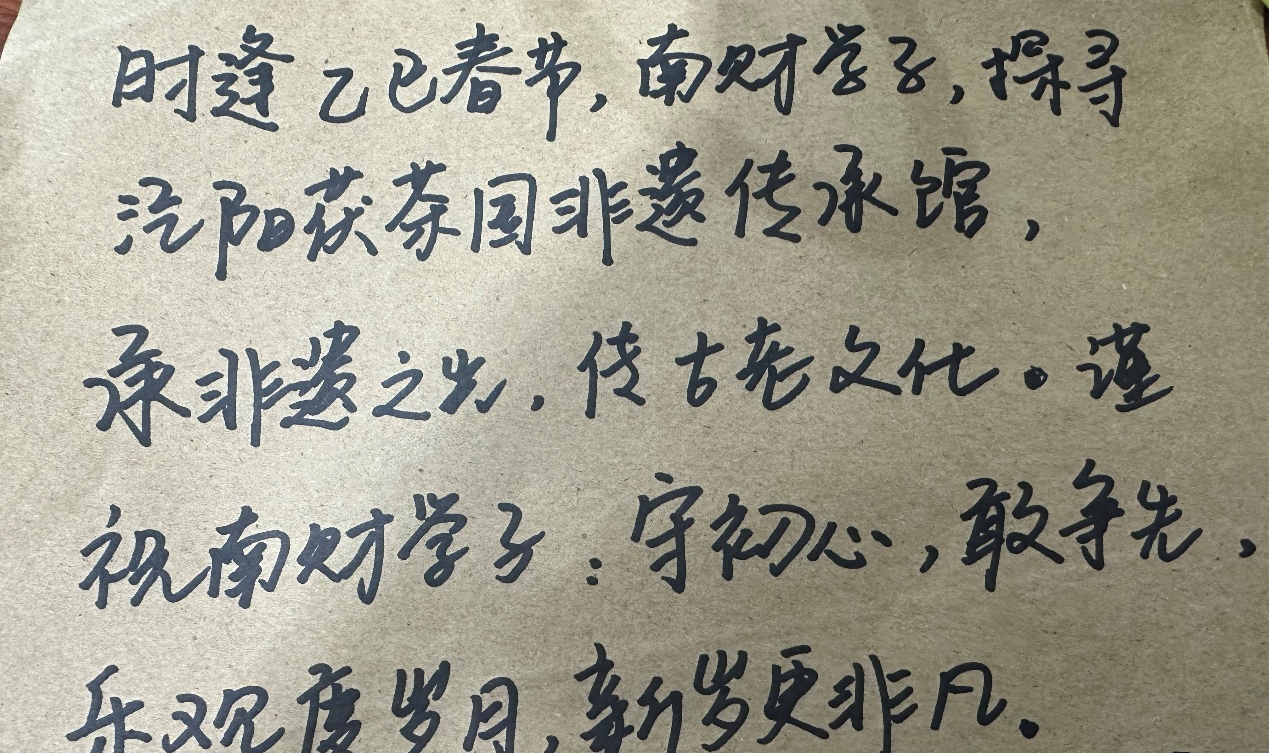 时逢乙巳春节,南财学子,探寻
泾阳茯茶园非遗传承馆,
承非遗之光,传古老文化。谨
祝南财学子:守初心,敢争先,
乐观度岁月,新岁更非凡。